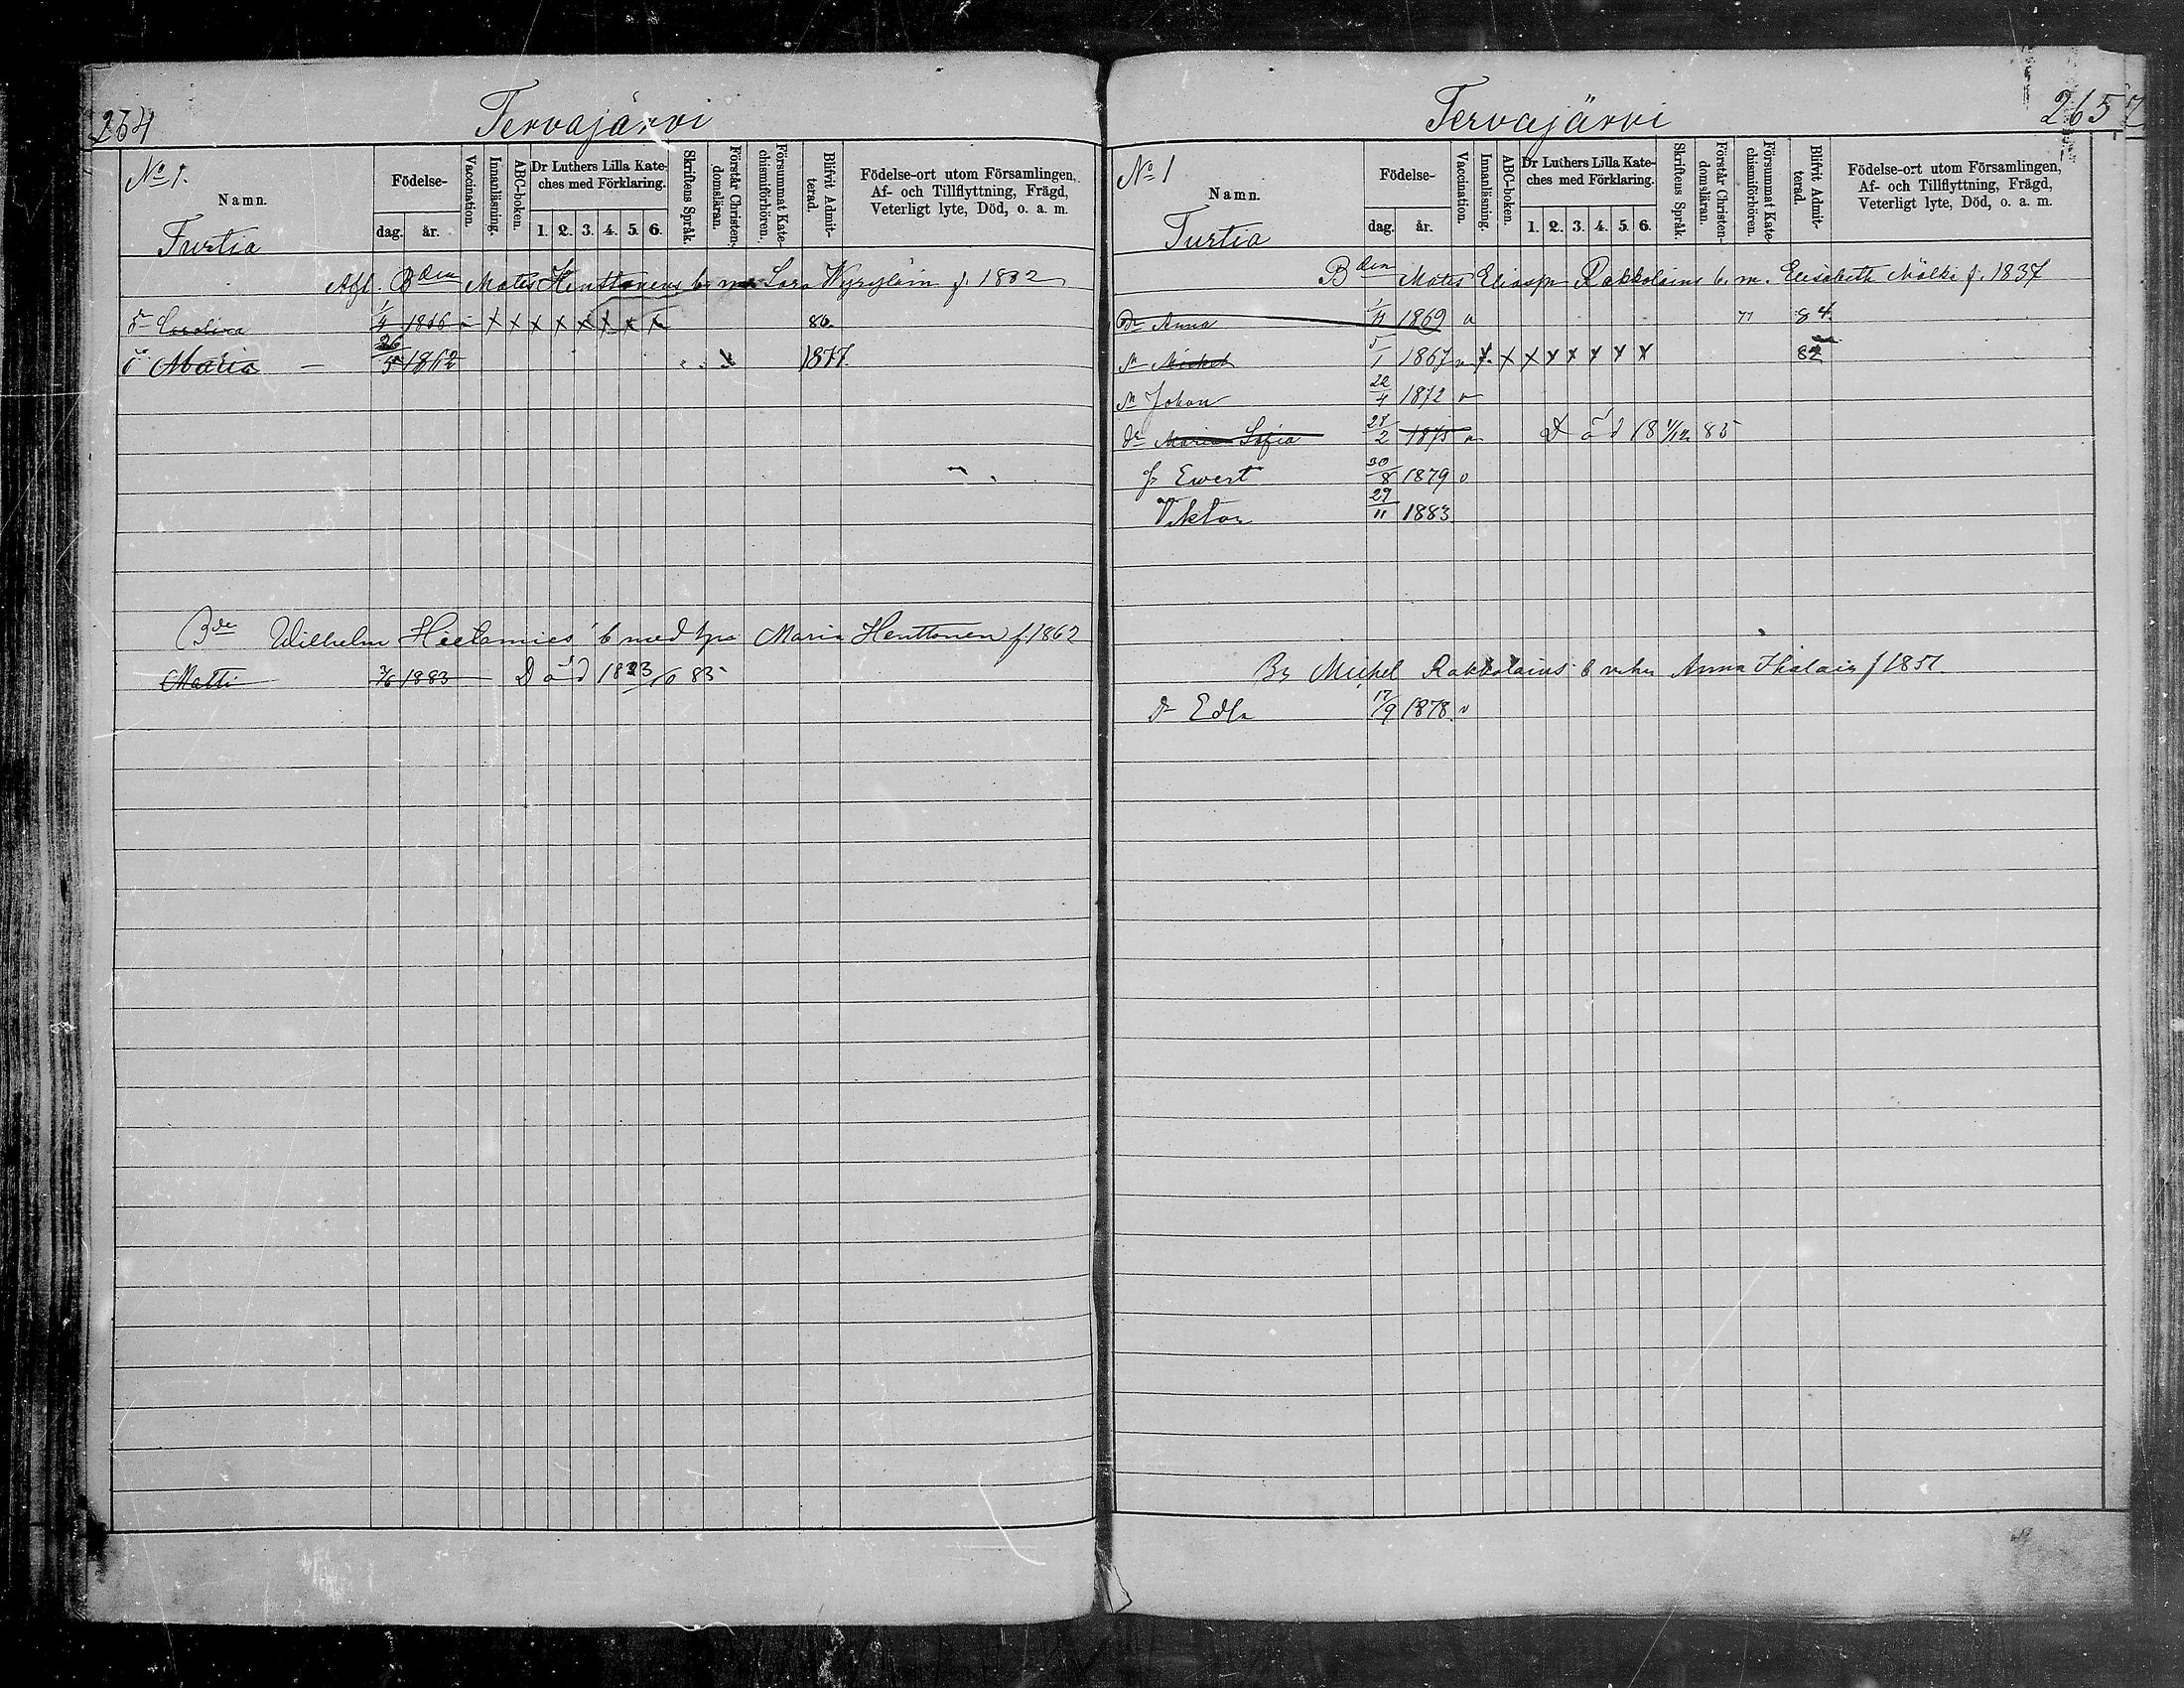 264
Tervajärvi
No 1.
Namn.
Turtia
Födelse-
dag. år.
Vaccination.
Innanläsning.
ABC-boken.
Dr Luthers Lilla Kate-
ches med Förklaring.
1. 2. 3. 4. 5. 6.
Skriftens Språk.
Förstår Christen-
domsläran.
Försummat Kate-
chismiförhören.
Blifvit Admit-
terad.
Födelse-ort utom Församlingen,
Af- och Tillflyttning, Frägd,
Veterligt lyte, Död, o. a. m.
Afl. Bden Mats Henttonens b. m. Sara f. 1832
Carolina 1/4 1866 x x x x x x x x 86.
Maria 26/5 1862 1877.
Bde Wilhelm b med hu Maria Henttonen f. 1862
Matti 3/6 1883 Död 18 23/10 85
Tervajärvi
265
No 1
Namn.
Turtia
Födelse-
dag. år.
Vaccination.
Innanläsning.
ABC-boken.
Dr Luthers Lilla Kate-
ches med Förklaring.
1. 2. 3. 4. 5. 6.
Skriftens Språk.
Förstår Christen-
domsläran.
Försummat Kate-
chismiförhören.
Blifvit Admit-
terad.
Födelse-ort utom Församlingen,
Af- och Tillflyttning, Frägd,
Veterligt lyte, Död, o. a. m.
Bden Mats Eliaspn Rakkolains b. m. Elisabeth Mölki f. 1837
Dr Anna 1869 v 77 84
Sn Michel 5/1 1867 v x x x x x x x x 82
Sn Johan 22/4 1872 v
dr Maria Sofia 27/2 1875 v Död 18 1/12 85
Ewert 30/8 1879 v
Viktor 29/11 1883
Michel Rakkolains b Anna Ihalain f 1851
dr Edla 17/9 1878 v